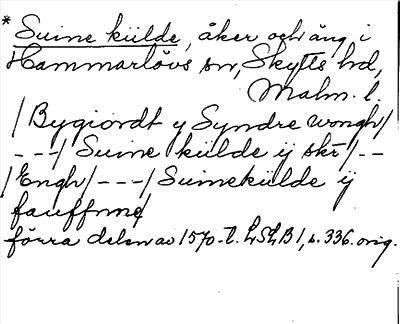 * Suine külde, åker och äng i
Hammarlövs sn, Skytts hd,
Malm. l.
/Bygiordt y Syndre wongh/
---/Suine külde ij skr/--
/Engh/---/Suinekülde ij
fauffnne/
förra delen av 1570-t. LSLB 1, s. 336. orig.